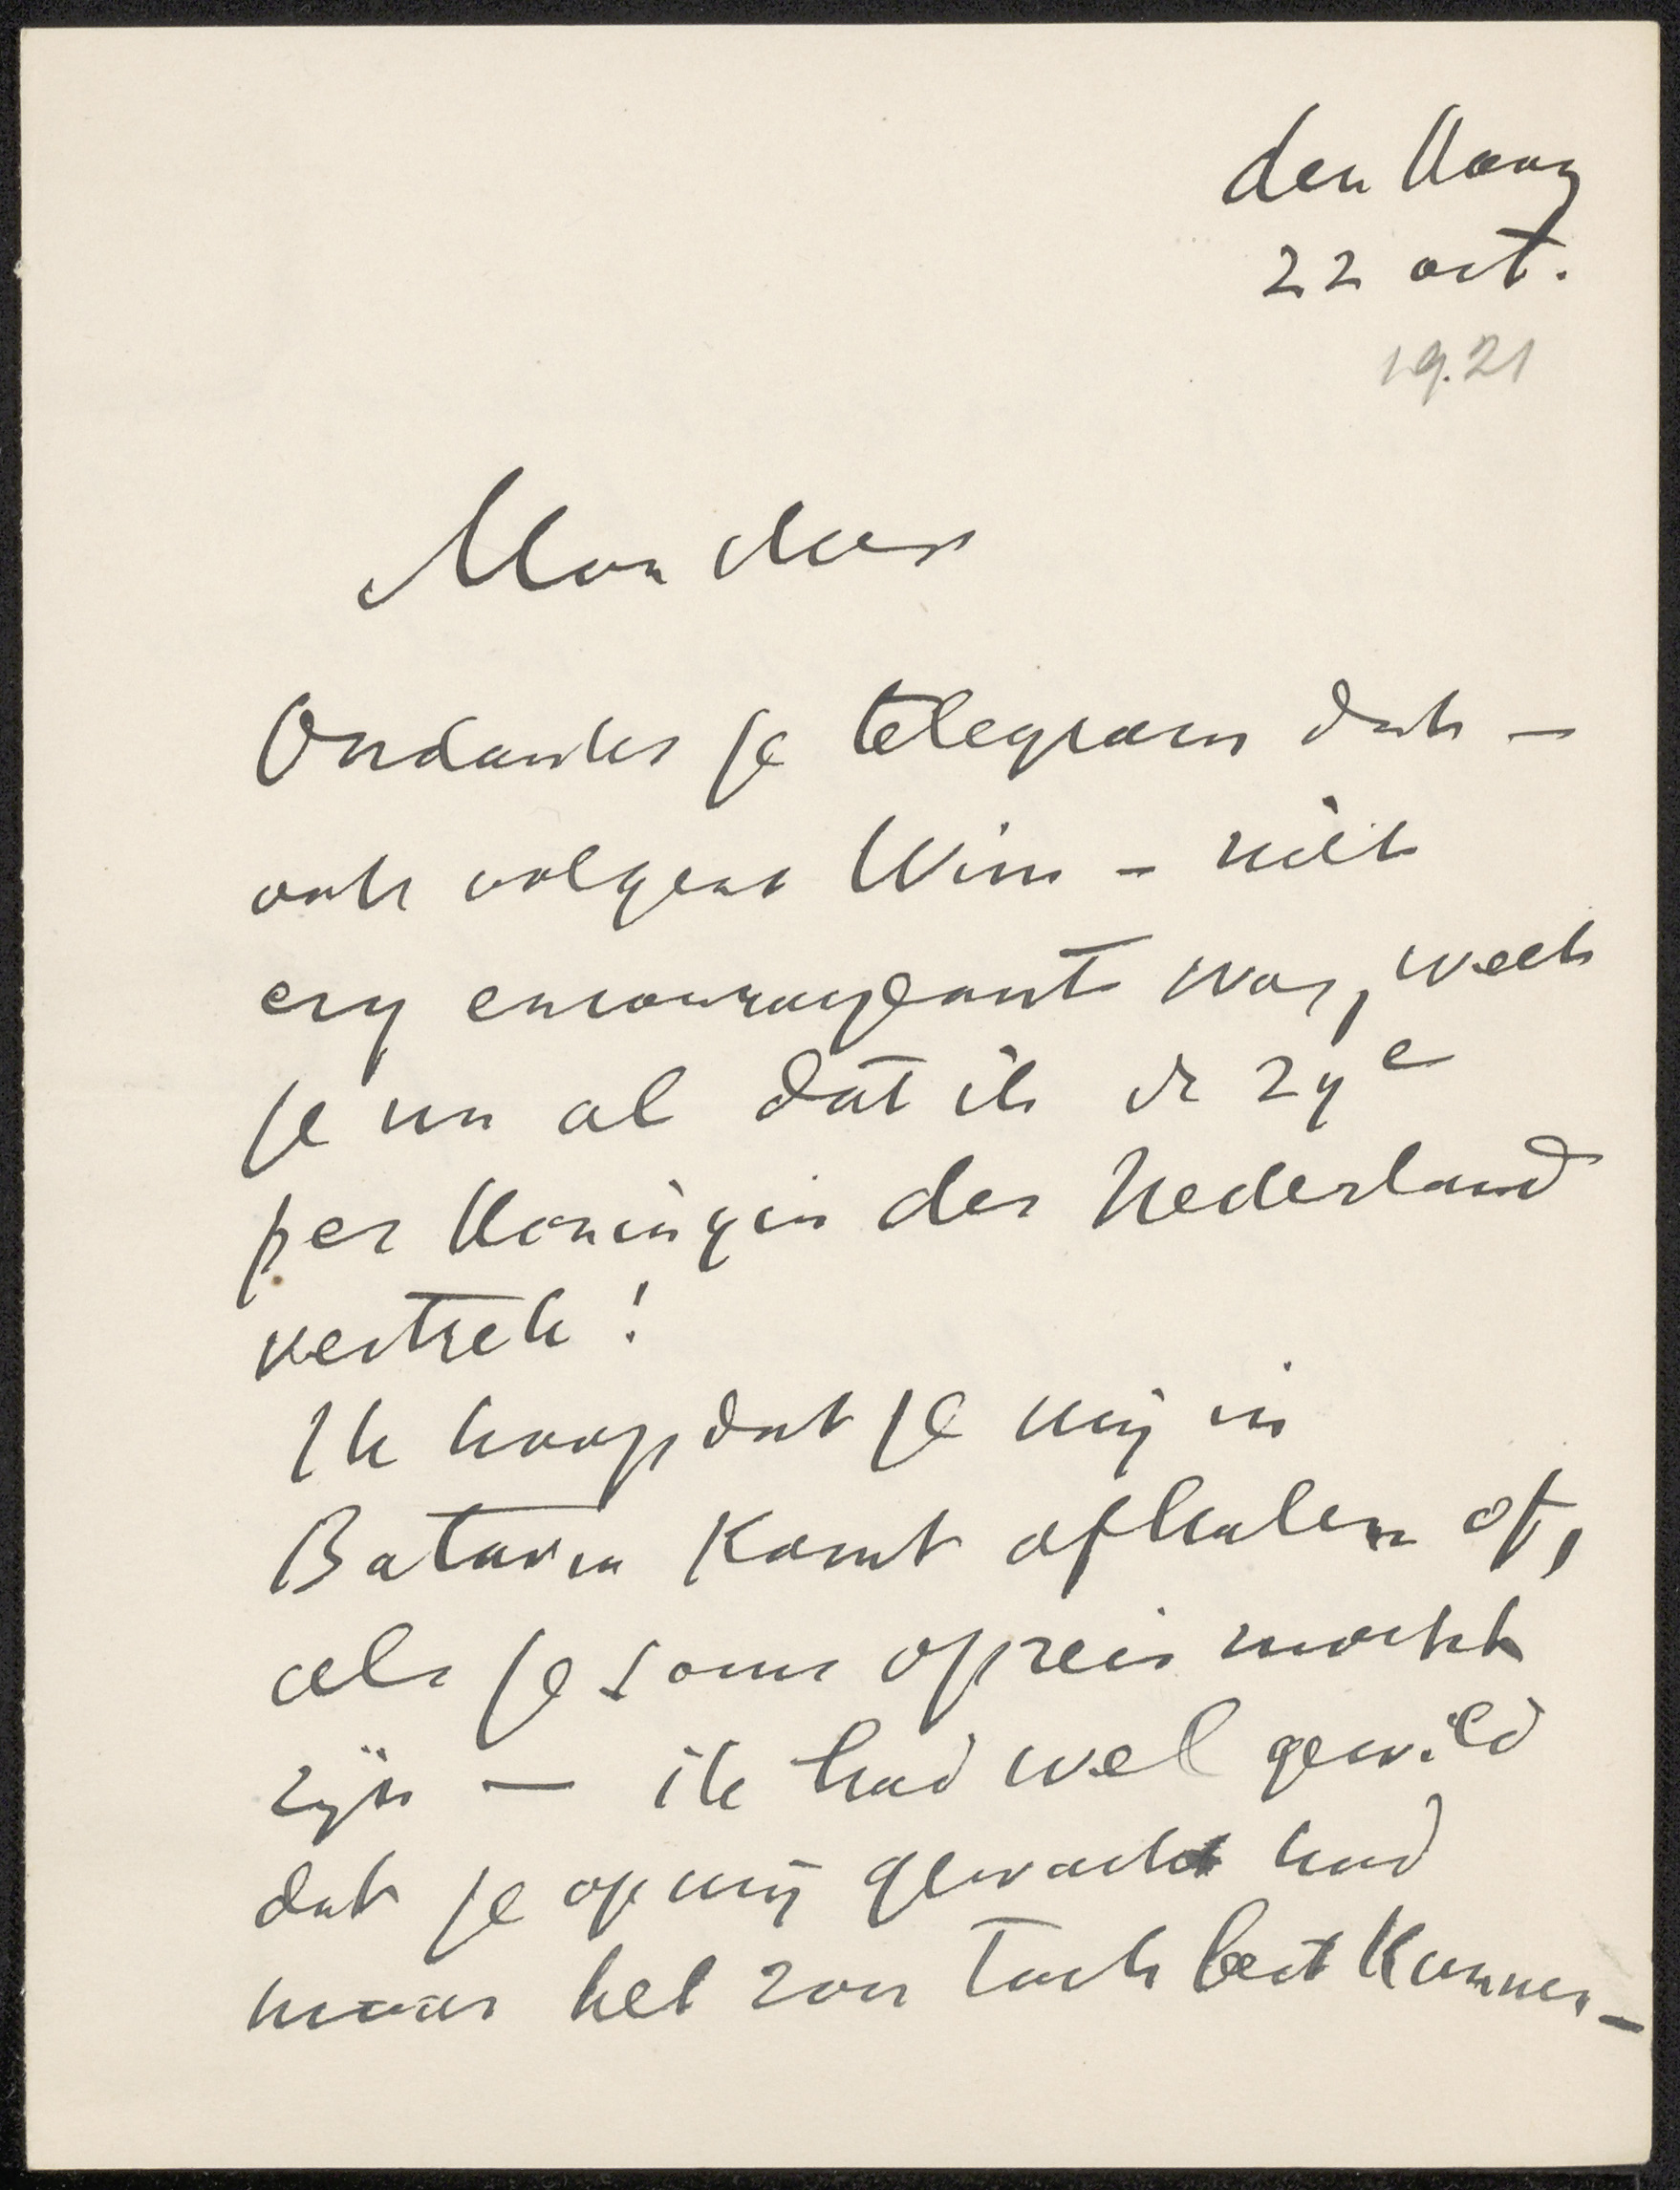 den Haag
22 oct.
1921
Mon cher
Ondanks je telegram dat —
ook volgens Wim — niet
erg encourageant was, weet
je nu al dat ik de 29e
per Koningin der Nederland
vertrek!
Ik hoop dat je mij in
Batavia komt afhalen of,
als je soms op reis mocht
zijn — ik had wel gewild
dat je op mij gewacht had
maar het zou toch best kunnen —